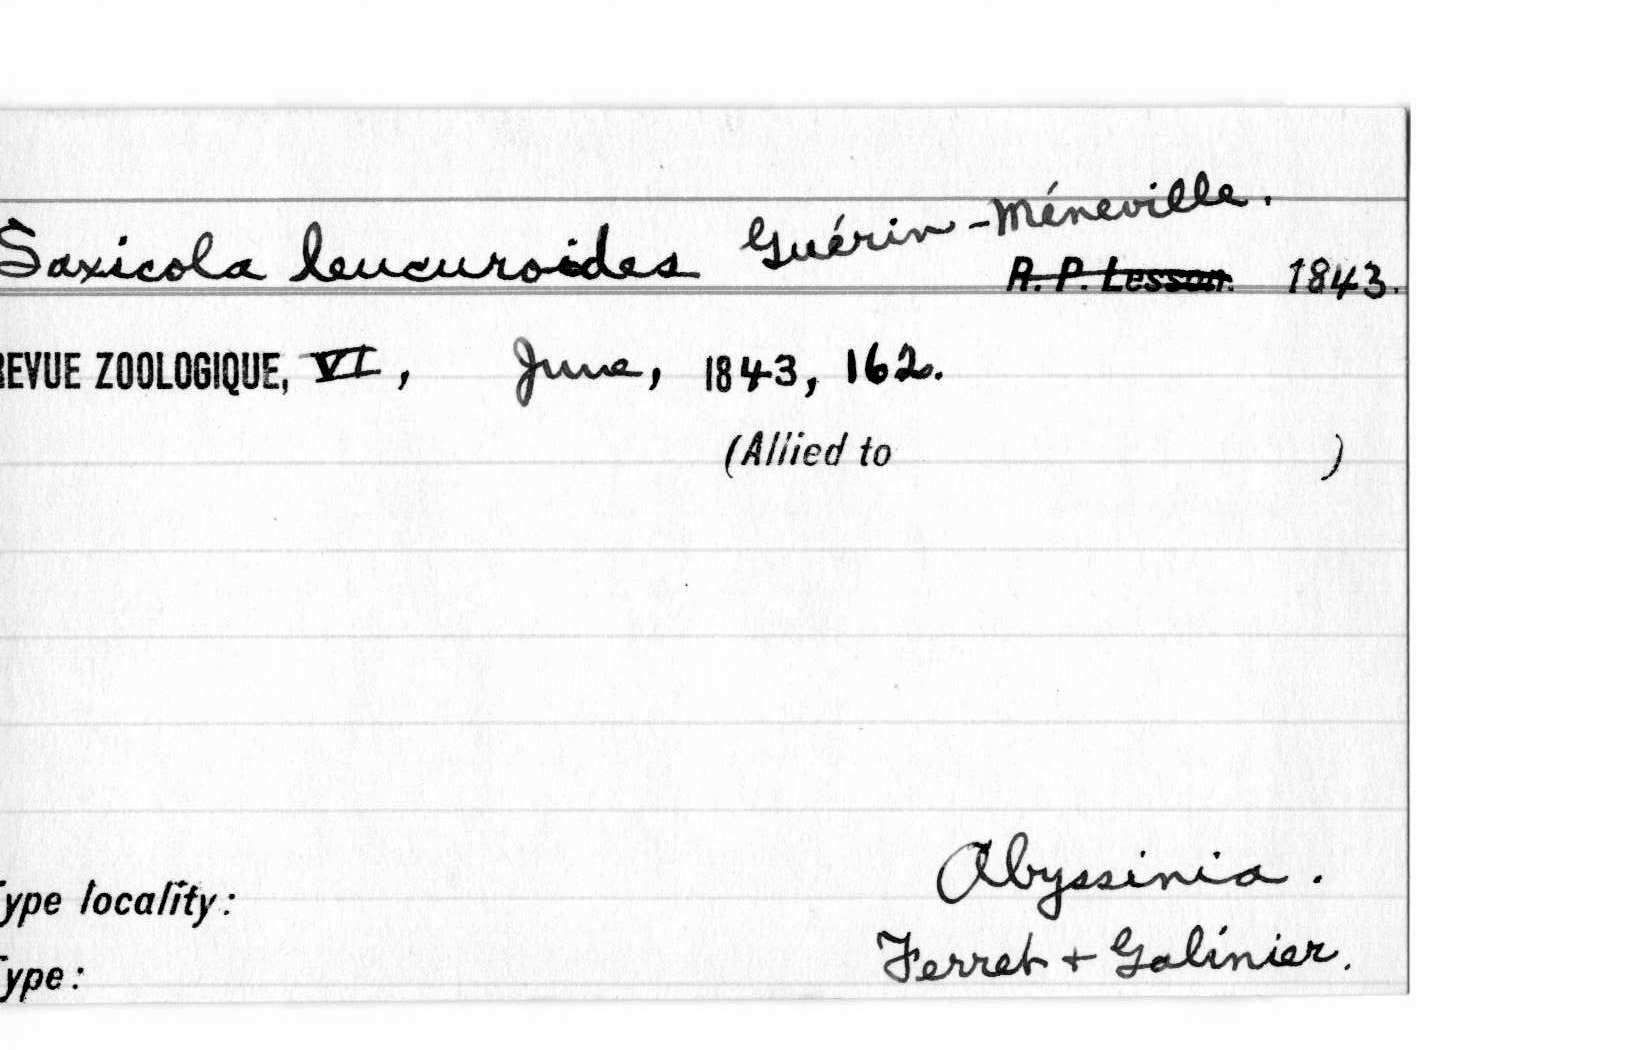 Saxicola leucuroides Guérin-Méneville.
R. P. Lesson. 1843.
REVUE ZOOLOGIQUE, VI, June, 1843, 162.
(Allied to )
Type locality: Abyssinia.
Type: Ferret + Galinier.